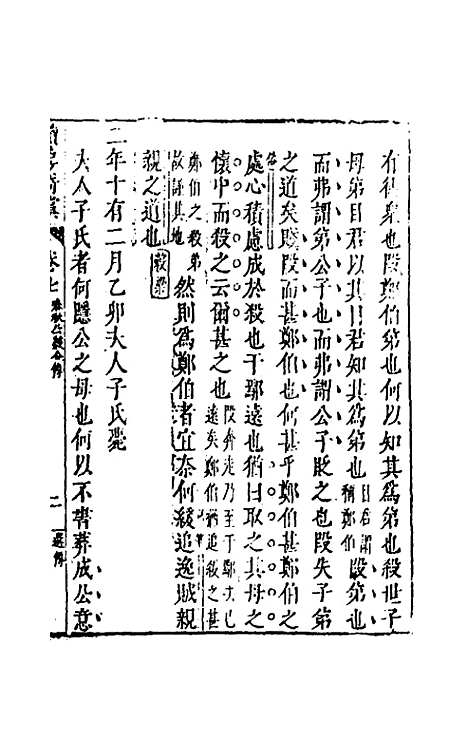 有徒衆也段鄭伯弟也何以知其爲弟也殺世子
母弟目君以其目君知其爲弟也目君謂稱鄭伯段弟也
而弗謂弟公子也而弗謂公子貶之也段失子弟
之道矣賤段而甚鄭伯也何甚乎鄭伯甚鄭伯之
處心積慮成於殺也于鄢遠也猶曰取之其母之
懷中而殺之云爾甚之也段奔走乃至于鄢去已遠矣鄭伯猶追殺之甚
鄭伯之殺弟故謹其地然則爲鄭伯者宜奈何緩追逸賊親
親之道也穀梁
二年十有二月乙卯夫人子氏薨
夫人子氏者何隱公之母也何以不書葬成公意
卷七 春秋公穀合傳 二 選傳